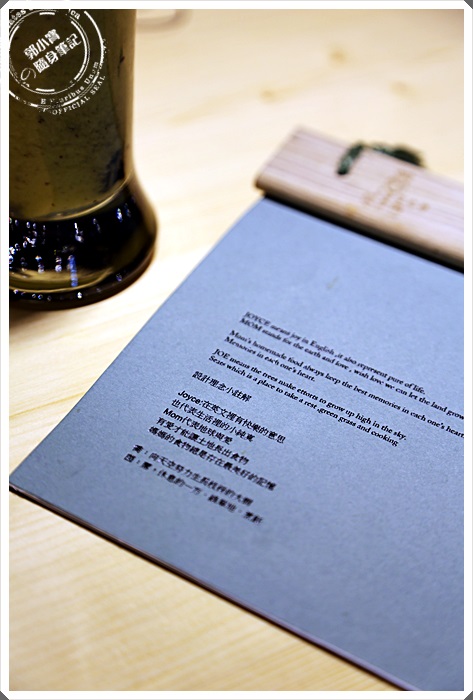 郭小寶
の隨身筆記
E Pluribus Unum
OFFICIAL SEAL
JOYCE meant joy in English, it also represent pure of life.
MOM stands for the earth and love , wish love we can let the land grow
Mom's homemade food always keep the best memories in each one's heart.
Memories in each one's heart.
JOE means the trees make efforts to grow up high in the sky.
Seats which is a place to take a rest, green grass and cooking
設計理念小註解
Joyce:在英文裡有快樂的意思
也代表生活裡的小純真
Mom代表地球與愛
有愛才能讓土地長出食物
媽媽的食物總是存在最美好的記憶
向天空努力生長枝枒的大樹
休息的一方